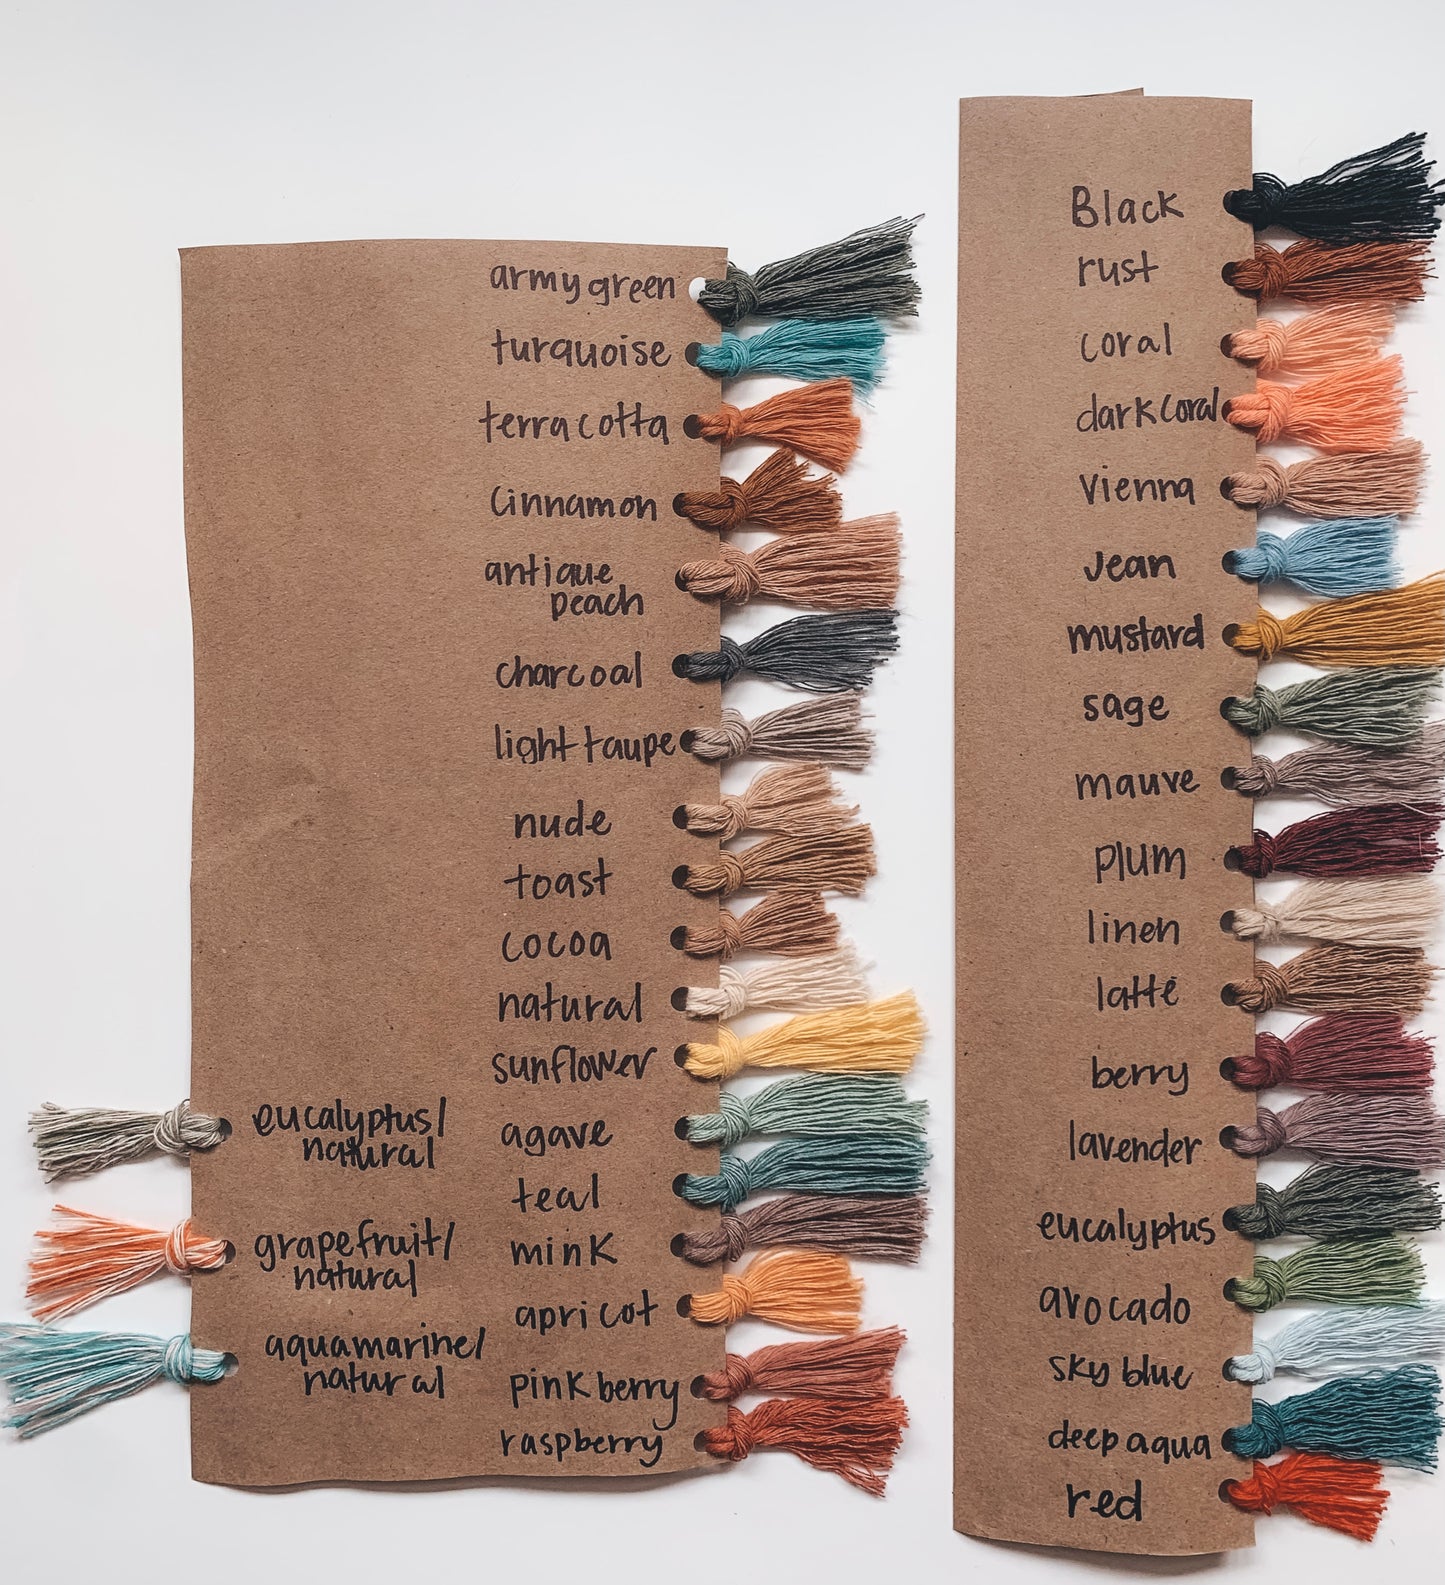 army green
turquoise
terra cotta
cinnamon
antique
peach
charcoal
light taupe
nude
toast
cocoa
natural
sunflower
agave
teal
mink
apricot
pink berry
raspberry
eucalyptus/
natural
grapefruit/
natural
aquamarine/
natural
Black
rust
coral
dark coral
Vienna
Jean
mustard
sage
mauve
plum
linen
latté
berry
lavender
eucalyptus
avocado
sky blue
deep aqua
red